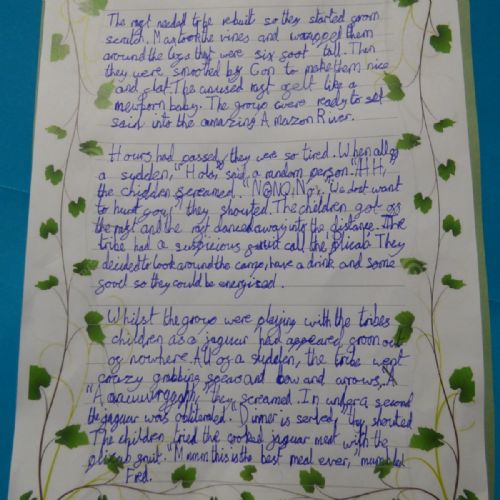 The raft needed to be rebuilt so they started from
scratch. Max took the vines and wrapped them
around the logs that were six foot tall. Then
they were smoothed by Con to make them nice
and flat. The unused raft felt like a
newborn baby. The group were ready to set
sail into the amazing Amazon River.
Hours had passed, they were so tired. When all of
a sudden, "Hola" said a random person. "AHH,"
the children screamed. "NONONo, We dont want
to hurt you," they shouted. The children got of
the raft and the raft danced away into the distance. The
tribe had a suspicious fruit call the plicab. They
decided to look around the camp, have a drink and some
food so they could be energised.
Whilst the group were playing with the tribes
children as a jaguar had appeared from out
of nowhere. All of a sudden, the tribe went
crazy grabbing spears and bow and arrows,
they screamed. In under a second
the jaguar was obliterated. "Dinner is served," they shouted
The children tried the cooked jaguar meat with the
plicab fruit. "Mmmm this is the best meal ever," mumbled
Fred.